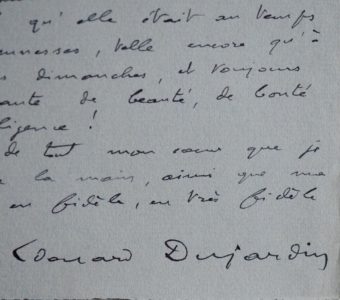 qu'elle était au temps
, telle encore qu'à
dimanches, et toujours
de beauté, de bonté
ligence !
de tout mon cœur que je
la main, ainsi que ma
en fidèle, en très fidèle
Edouard Dujardin